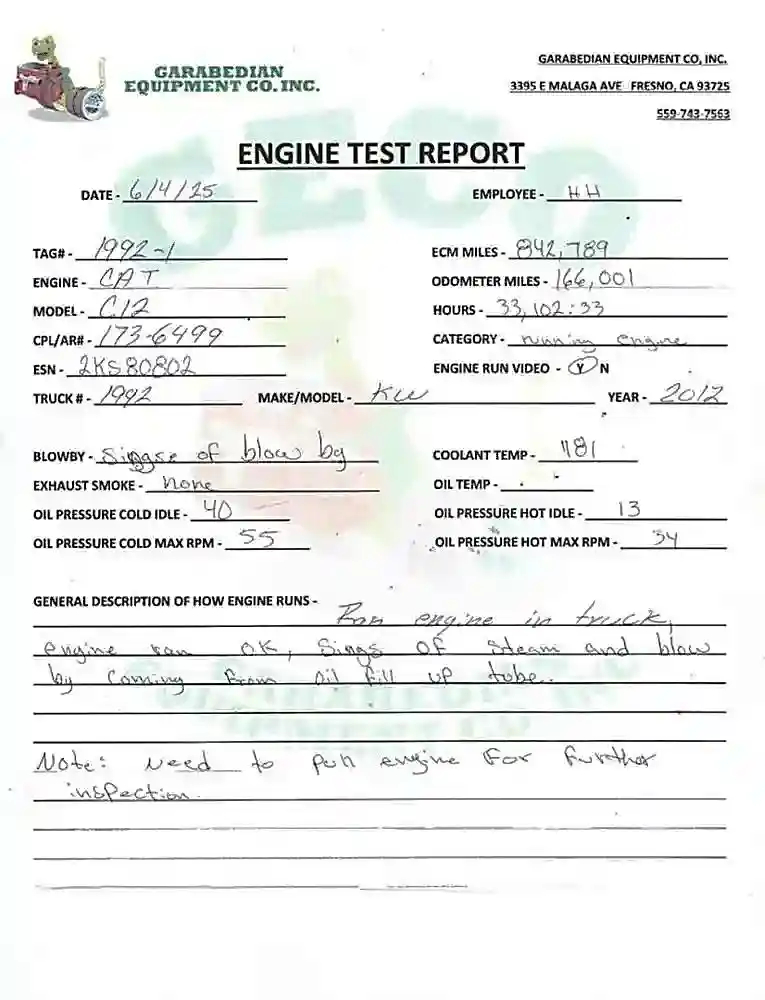 GARABEDIAN
EQUIPMENT CO. INC.
GARABEDIAN EQUIPMENT CO, INC.
3395 E MALAGA AVE FRESNO, CA 93725
559-743-7563
GECO
ENGINE TEST REPORT
DATE - 6/4/25 EMPLOYEE - HH
TAG# - 1992-1 ECM MILES - 842,789
ENGINE - CAT ODOMETER MILES - 166,001
MODEL - C12 HOURS - 33,102:33
CPL/AR# - 173-6499 CATEGORY - running engine
ESN - 2KS80802 ENGINE RUN VIDEO - Y N
TRUCK # - 1992 MAKE/MODEL - KW YEAR - 2012
BLOWBY - Singse of blow by COOLANT TEMP - 181
EXHAUST SMOKE - none OIL TEMP -
OIL PRESSURE COLD IDLE - 40 OIL PRESSURE HOT IDLE - 13
OIL PRESSURE COLD MAX RPM - 55 OIL PRESSURE HOT MAX RPM - 34
GENERAL DESCRIPTION OF HOW ENGINE RUNS -
Ran engine in truck,
engine ran OK, Sings OF Steam and blow
by Coming From Oil fill up tube.
Note: need to pull engine For Further
inspection.